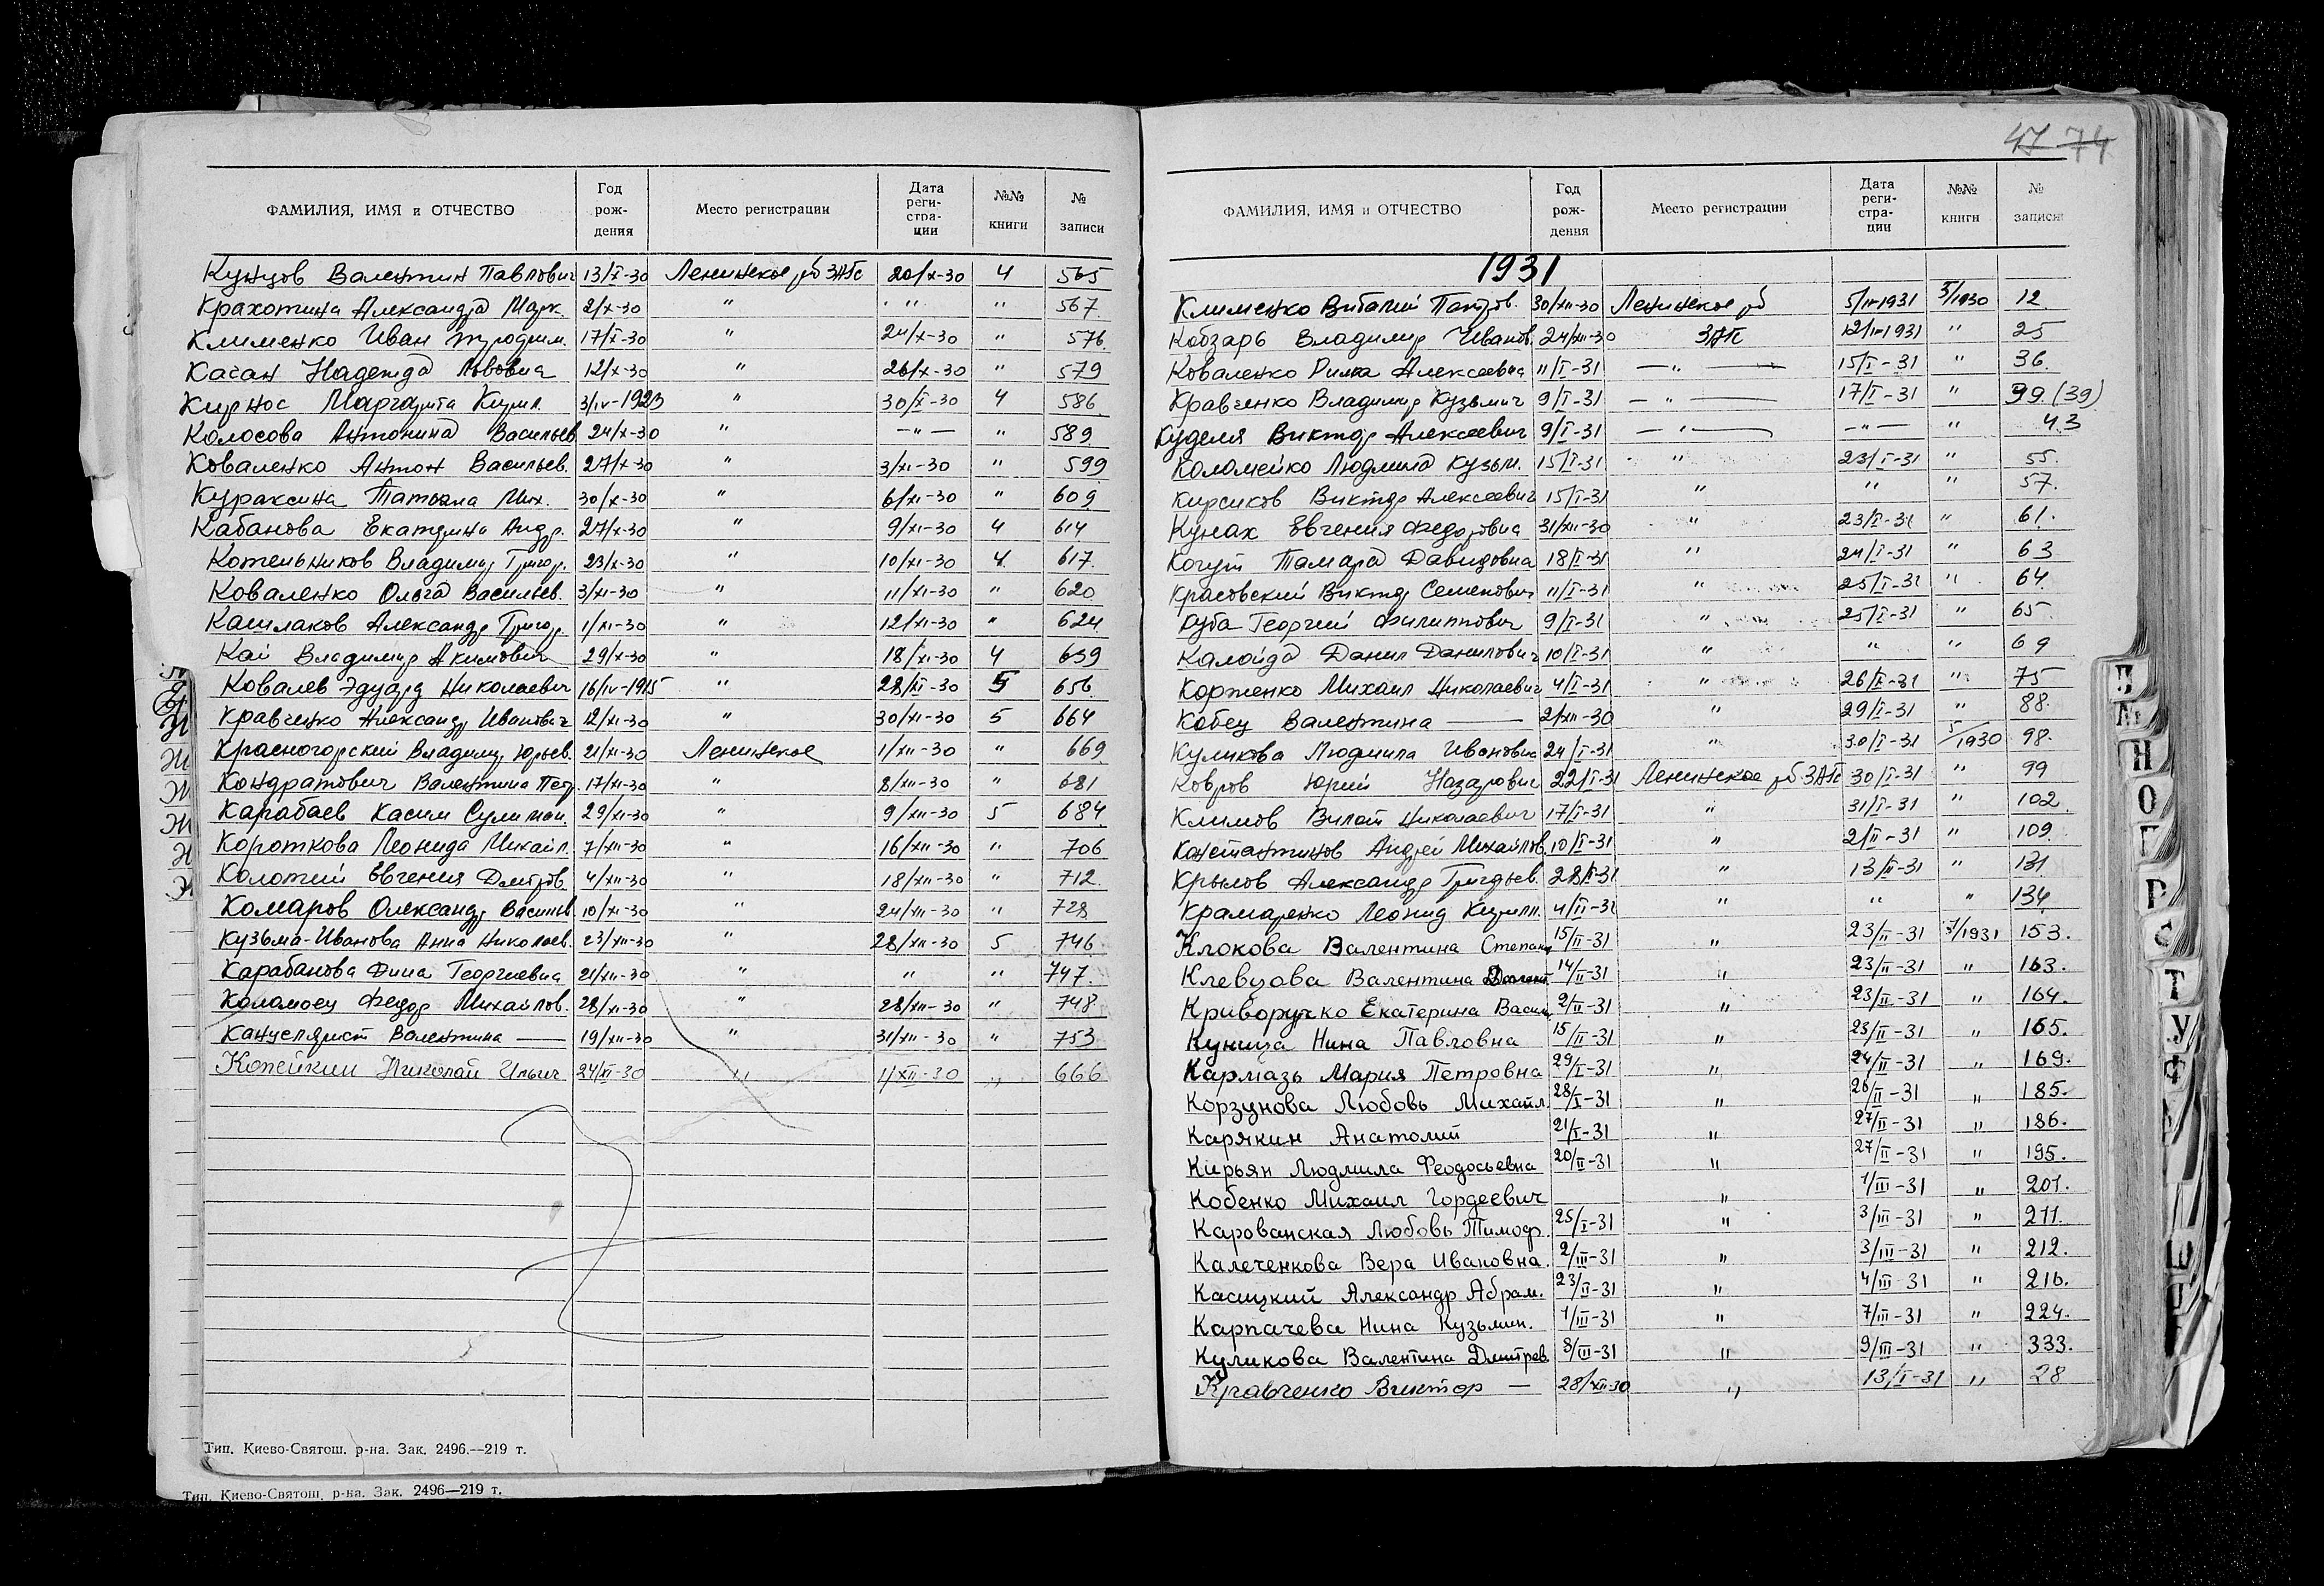 47 74
ФАМИЛИЯ, ИМЯ и ОТЧЕСТВО Год рождения Место регистрации Дата регистрации №№ книги № записи
Кунцов Валентин Павлович 13/X-30 Ленинское рб ЗАГс 20/X-30 4 565
Крахотина Александра Марк. 2/X-30 " " " " 567
Клименко Иван 17/X-30 " 24/X-30 " 576
Каган Надежда Львовна 12/X-30 " 26/X-30 " 579
Кирнос Маргарита Кирил. 3/IV-1923 " 30/X-30 4 586
Колосова Антонина Васильев 24/X-30 " —"— " 589
Коваленко Антон Васильев. 27/X-30 " 3/XI-30 " 599
Кураксина Татьяна Мих. 30/X-30 " 6/XI-30 " 609
Кабанова Екатерина Андр. 27/X-30 " 9/XI-30 4 614
Котельников Владимир Григор. 23/X-30 " 10/XI-30 4 617
Коваленко Ольга Васильев. 3/XI-30 " 11/XI-30 " 620
Кашлаков Александр Григор. 1/XI-30 " 12/XI-30 " 624
Кай Владимир Акимович 29/X-30 " 18/XI-30 4 639
Ковалев Эдуард Николаевич 16/IV-1915 " 28/XI-30 5 656
Кравченко Александр Иванович 12/XI-30 " 30/XI-30 5 664
Красногорский Владимир Юрьев. 21/XI-30 Ленинское 1/XII-30 " 669
Кондратович Валентина Петр. 17/XI-30 " 8/XII-30 " 681
Карабаев Касим Сулиман. 29/XI-30 " 9/XII-30 5 684
Короткова Леонида Михайл. 7/XII-30 " 16/XII-30 " 706
Колотий Евгения Дмитров. 4/XII-30 " 18/XII-30 " 712
Комаров Олександр Васильев. 10/XI-30 " 24/XII-30 " 728
Кузьма-Иванова Анна Николаев. 23/XII-30 " 28/XII-30 5 746
Карабанова Дина Георгиевна 21/XII-30 " " " 747.
Коломоец Федор Михайлов. 28/XI-30 " 28/XII-30 " 748
Канцелярист Валентина — 19/XII-30 " 31/XII-30 " 753
Копейкин Николай Ильич 24/XI-30 " 1/XII-30 " 666
Тип. Киево-Святош. р-на. Зак. 2496.—219 т.
Тип. Киево-Святош. р-на. Зак. 2496—219 т.
ФАМИЛИЯ, ИМЯ и ОТЧЕСТВО Год рождения Место регистрации Дата регистрации №№ книги № записи
1931
Клименко Виталий Петров. 30/XII-30 Ленинское рб 5/I-1931 5/1930 12
Кобзарь Владимир Иванов. 24/XII-30 ЗАГс 12/I-1931 " 25
Коваленко Римма Алексеевна 11/I-31 —"— 15/I-31 " 36
Кравченко Владимир Кузьмич 9/I-31 —"— 17/I-31 " 99 (39)
Куделя Виктор Алексеевич 9/I-31 —"— —"— " 43
Коломейко Людмила Кузьм. 15/I-31 " 23/I-31 " 55.
Кирсиков Виктор Алексеевич 15/I-31 " " " 57.
Кунах Евгения Федоровна 31/XII-30 " 23/I-31 " 61.
Когут Тамара Давидовна 18/I-31 " 24/I-31 " 63
Красовский Виктор Семенович 11/I-31 " 25/I-31 " 64
Куба Георгий Филиппович 9/I-31 " 25/I-31 " 65
Калайда Данил Данилович 10/I-31 " " " 69
Корженко Михаил Николаевич 4/I-31 " 26/I-31 " 75
Кобец Валентина — 2/XII-30 " 29/I-31 " 88.
Куликова Людмила Ивановна 24/I-31 " 30/I-31 5/1930 98.
Ковров Юрий Назарович 22/I-31 Ленинское рб ЗАГс 30/I-31 " 99
Климов Вилат Николаевич 17/I-31 " 31/I-31 " 102
Константинов Андрей Михайлов. 10/I-31 " 2/II-31 " 109
Крылов Александр Григорьев. 28/I-31 " 13/II-31 " 131
Крамаренко Леонид Кирилл. 4/II-31 " " " 134
Клокова Валентина Степан. 15/II-31 " 23/II-31 1/1931 153.
Клевцова Валентина 14/II-31 " 23/II-31 " 163.
Криворучко Екатерина Васил. 2/II-31 " 23/II-31 " 164.
Куница Нина Павловна 15/II-31 " 23/II-31 " 165.
Кармазь Мария Петровна 29/I-31 " 24/II-31 " 169.
Корзунова Любовь Михайл. 28/I-31 " 26/II-31 " 185.
Карякин Анатолий 21/I-31 " 27/II-31 " 186.
Кирьян Людмила Феодосьевна 20/II-31 " 27/II-31 " 195.
Кобенко Михаил Гордеевич " 1/III-31 " 201.
Карованская Любовь Тимоф. 25/I-31 " 3/III-31 " 211.
Калеченкова Вера Ивановна. 2/III-31 " 3/III-31 " 212.
Касицкий Александр Абрам. 23/II-31 " 4/III-31 " 216.
Карпачева Нина Кузьмин. 1/III-31 " 7/III-31 " 224.
Куликова Валентина Дмитрев. 3/III-31 " 9/III-31 " 333.
Кравченко Виктор — 28/XII-30 " 13/I-31 " 28
Л
М
Н
О
П
Р
С
Т
У
Ф
Ш